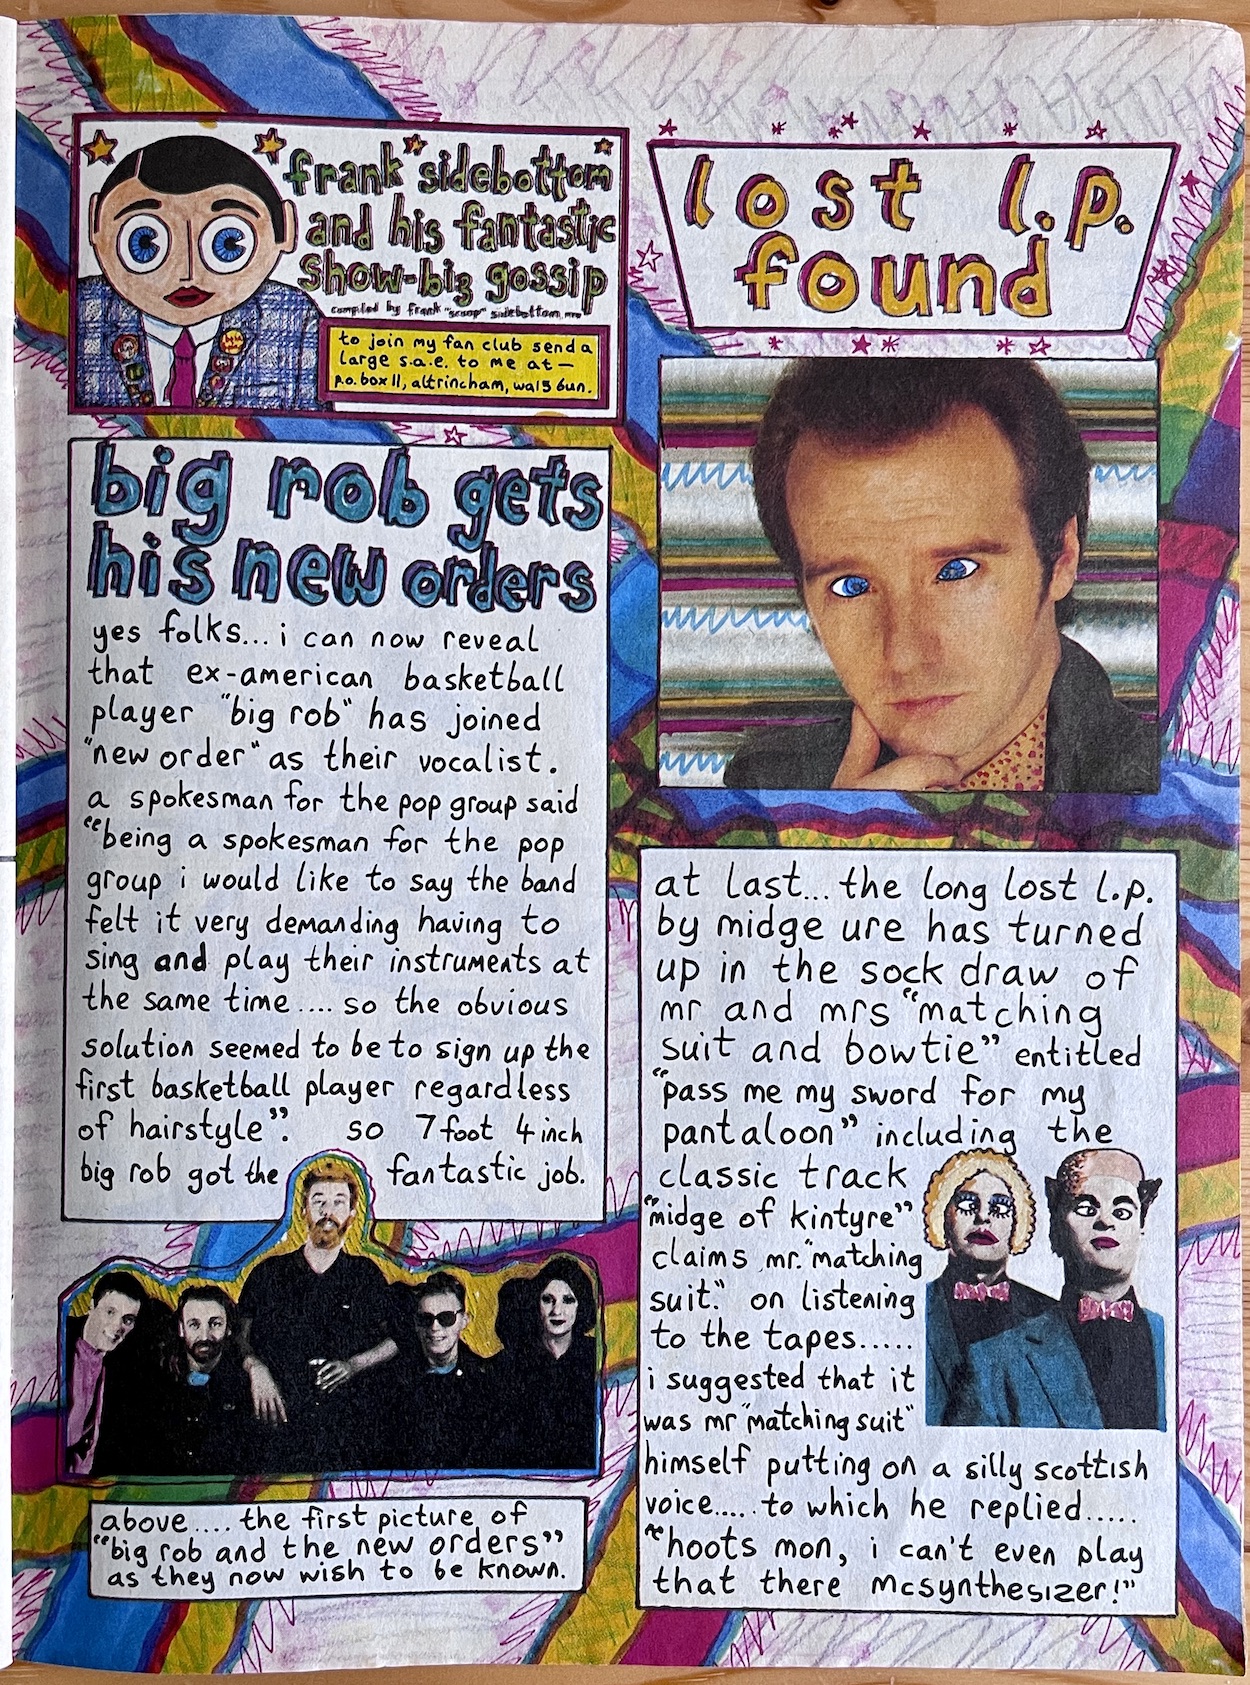 "frank sidebottom"
and his fantastic
show-biz gossip
compiled by frank "scoop" sidebottom
to join my fan club send a
large s.a.e. to me at —
p.o. box 11, altrincham, wa15 6un.
big rob gets
his new orders
yes folks... i can now reveal
that ex-american basketball
player "big rob" has joined
"new order" as their vocalist.
a spokesman for the pop group said
"being a spokesman for the pop
group i would like to say the band
felt it very demanding having to
sing and play their instruments at
the same time.... so the obvious
solution seemed to be to sign up the
first basketball player regardless
of hairstyle". so 7 foot 4 inch
big rob got the fantastic job.
above.... the first picture of
"big rob and the new orders"
as they now wish to be known.
lost l.p.
found
at last... the long lost l.p.
by midge ure has turned
up in the sock draw of
mr and mrs "matching
suit and bowtie" entitled
"pass me my sword for my
pantaloon" including the
classic track
"midge of kintyre"
claims mr. "matching
suit". on listening
to the tapes.....
i suggested that it
was mr "matching suit"
himself putting on a silly scottish
voice..... to which he replied.....
"hoots mon, i can't even play
that there mcsynthesizer!"